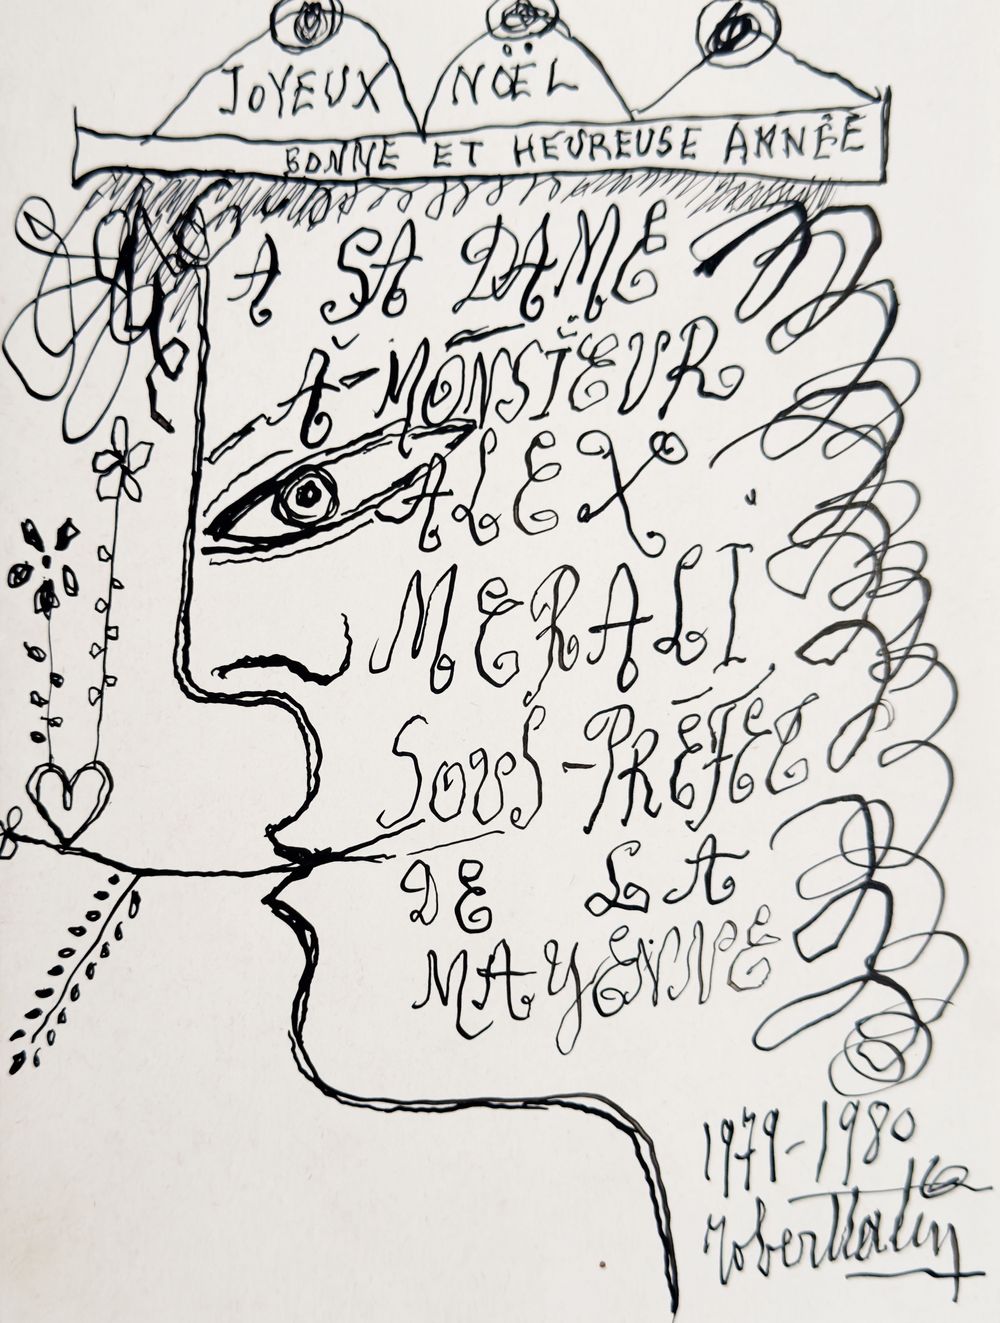 JOYEUX NOËL
BONNE ET HEUREUSE ANNÉE
A SA DAME
A-MONSIEUR
ALEX
MERALI
SOUS-PRÉFET
DE LA
MAYENNE
1979-1980
Robert Tatin